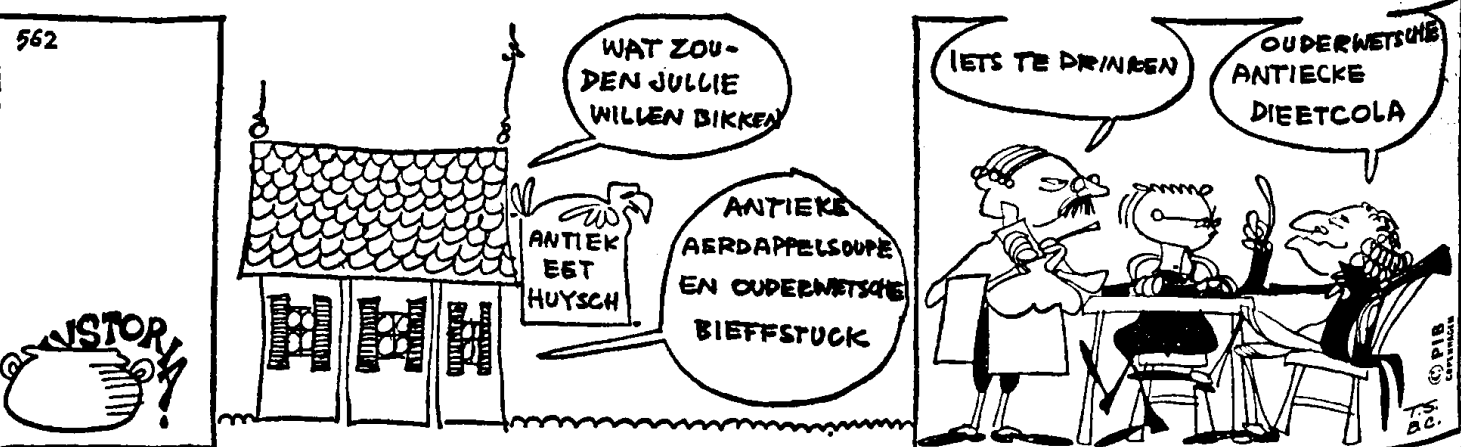 562
WAT ZOU-
DEN JULLIE
WILLEN BIKKEN
ANTIEK
EET
HUYSCH
ANTIEKE
AERDAPPELSOUPE
EN OUDERWETSCHE
BIEFFSTUCK
IETS TE DRINKEN
OUDERWETSCHE
ANTIECKE
DIEETCOLA
© PIB
COPENHAGEN
T.S.
B.C.